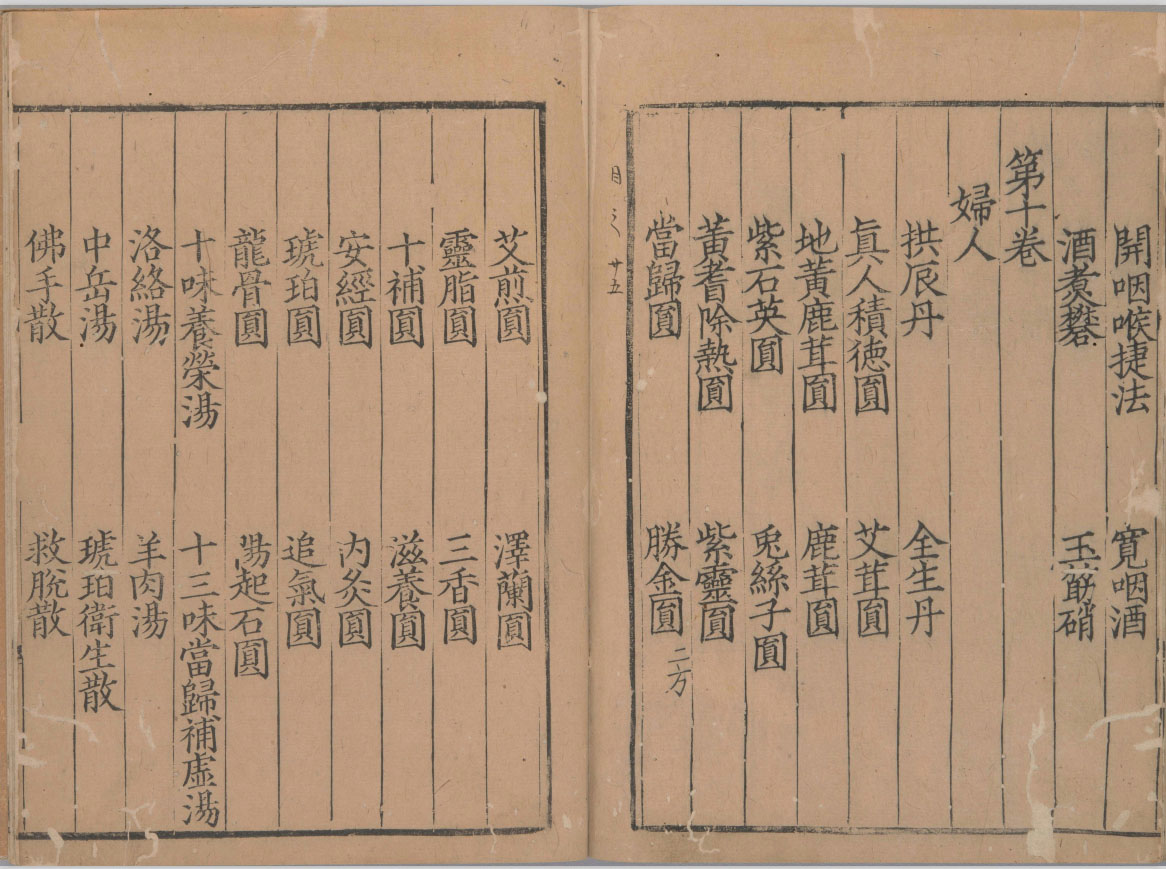 開咽喉捷法 寛咽酒
酒煮礬 玉筯硝
第十卷
婦人
拱辰丹 全生丹
眞人積徳圓 艾茸圓
地黃鹿茸圓 鹿茸圓
紫石英圓 兎絲子圓
黃耆除熱圓 紫靈圓
當歸圓 勝金圓 二方
目 廿五
艾煎圓 澤蘭圓
靈脂圓 三香圓
十補圓 滋養圓
安經圓 内灸圓
琥珀圓 追氣圓
龍骨圓 陽起石圓
十味養榮湯 十三味當歸補虚湯
洛絡湯 羊肉湯
中岳湯 琥珀衛生散
佛手散 救脫散